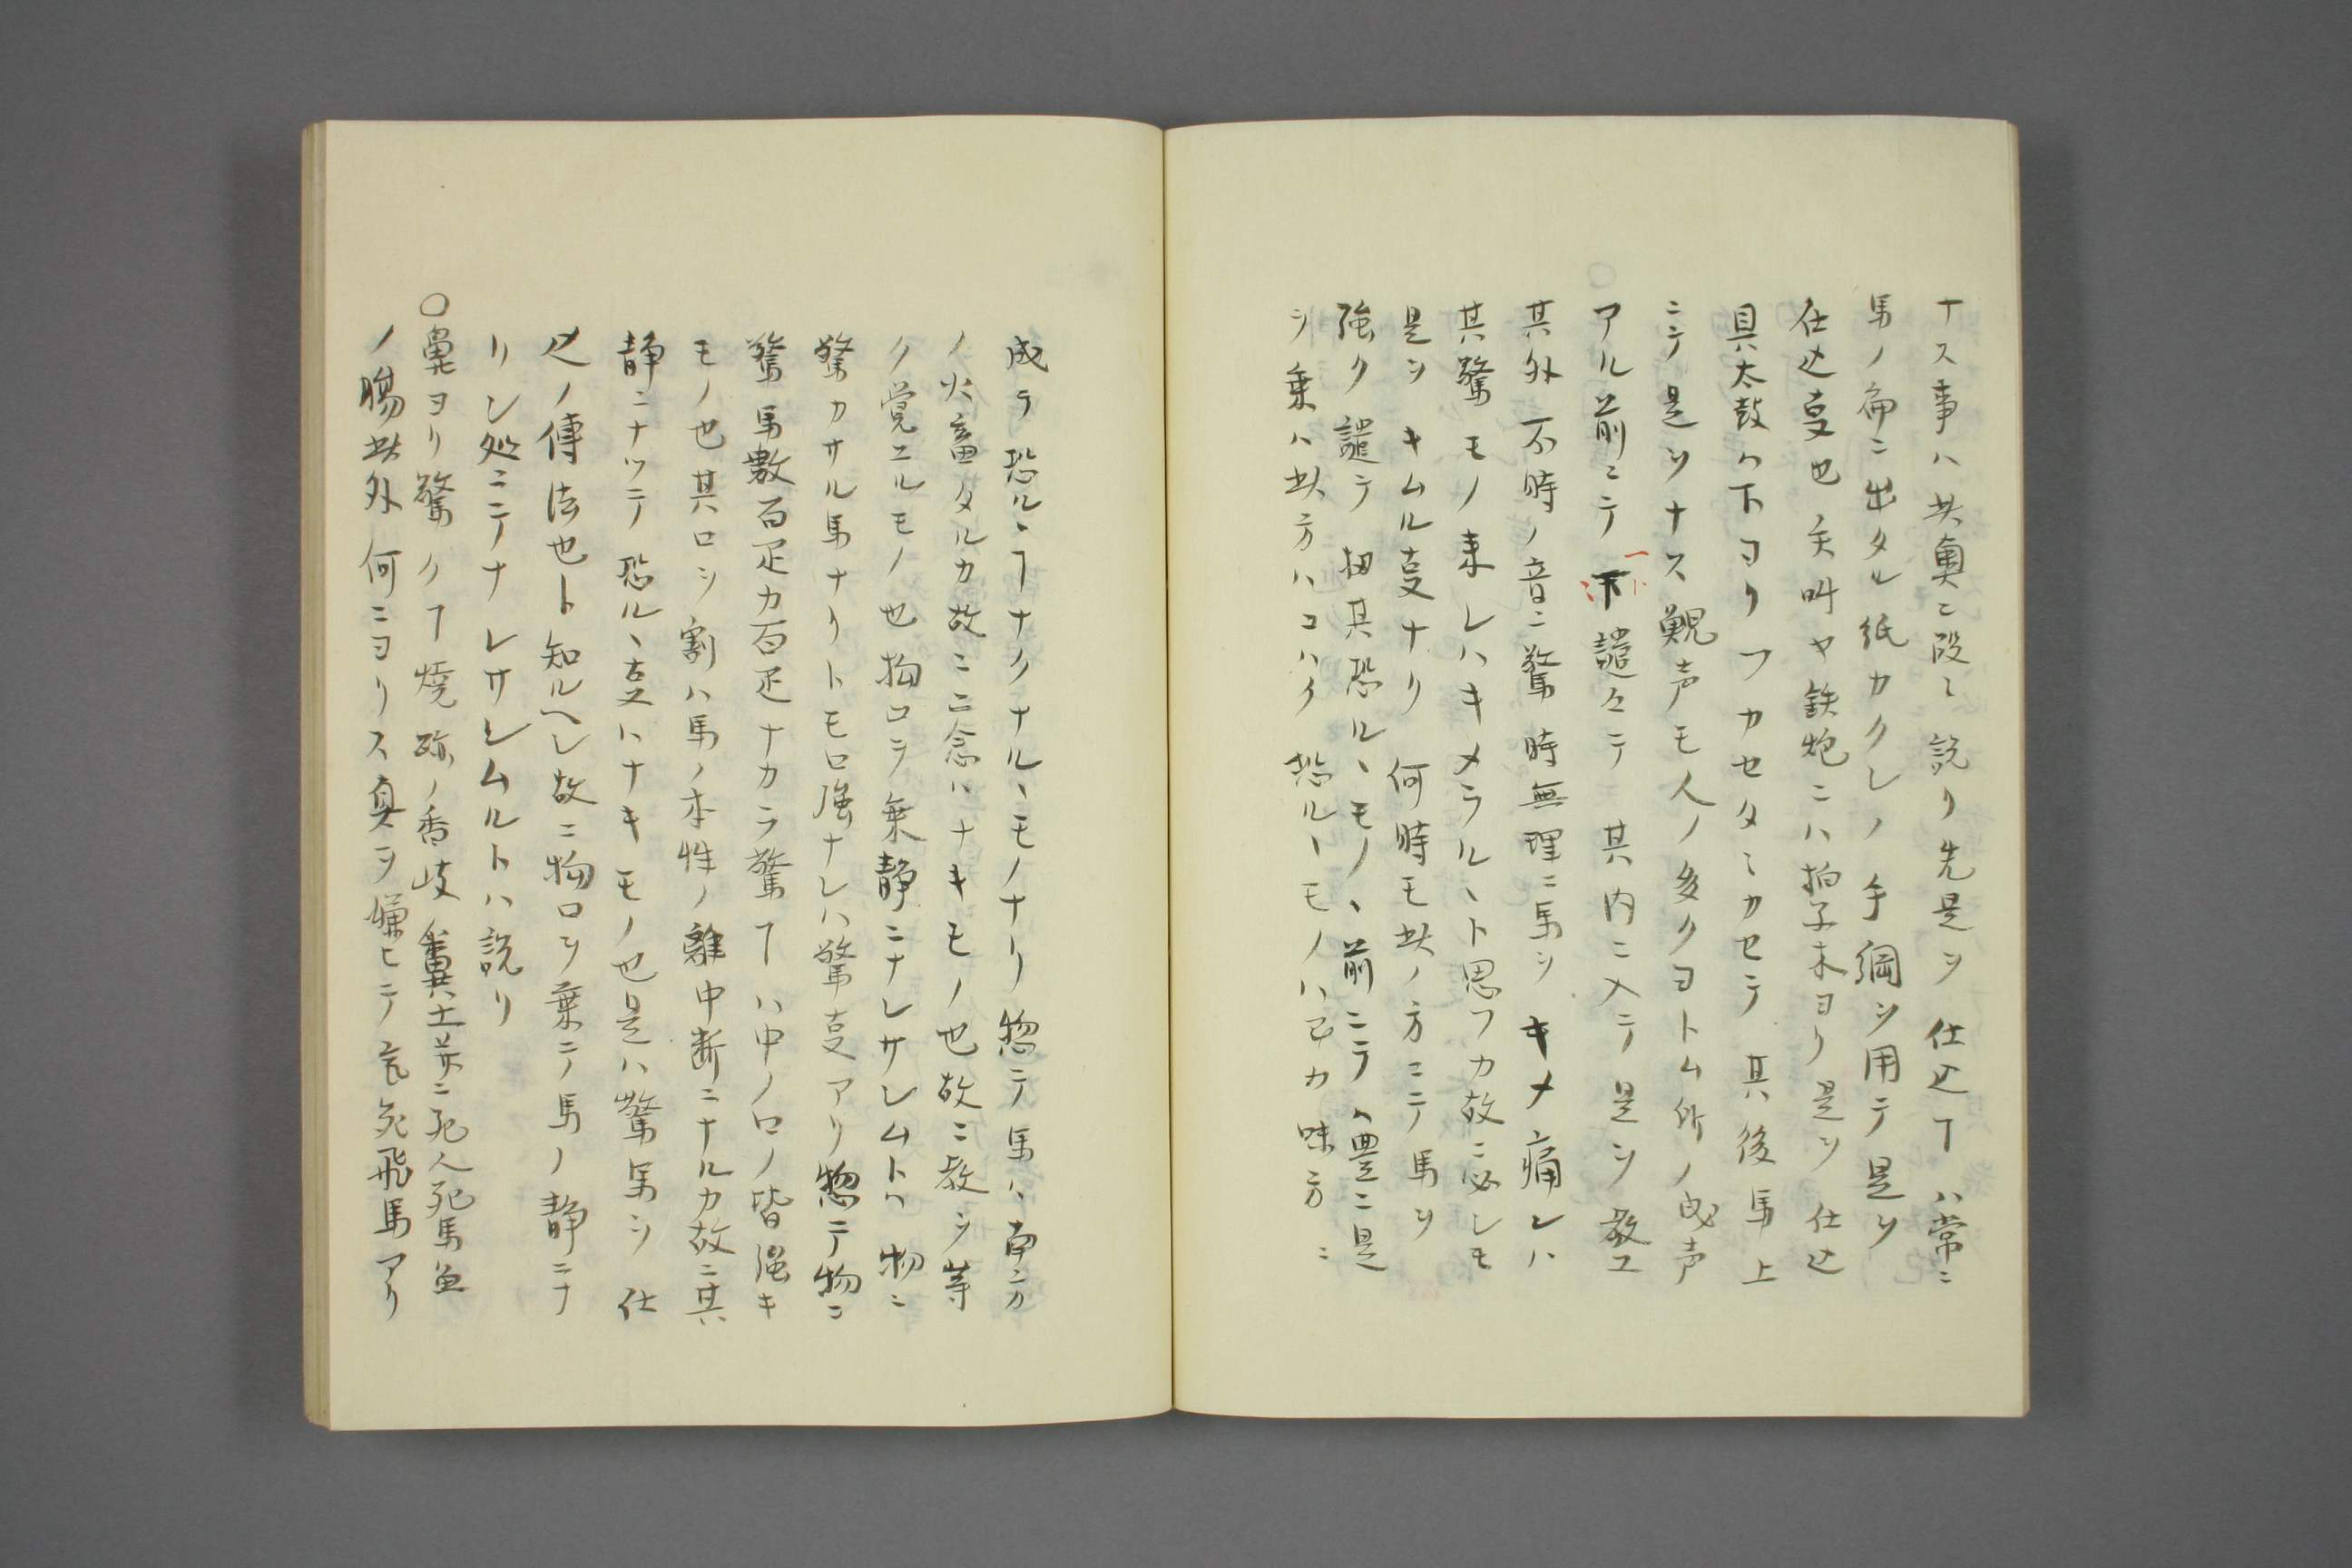 ナス事ハ此奥ニ段〻説リ先是ヲ仕込ヿハ常ニ
馬ノ前ニ出タル紙カクシノ手綱ヲ用テ是ヲ
仕込叓也矢叫ヤ鉄炮ニハ拍子木ヨリ是ヲ仕込
貝太鼓ハ下ヨリフカセタヽカセテ其後馬上
ニテ是ヲナス鯢声モ人ノ多クヨトム所ノ閧声
アル前ニテ下譴々テ其内ニ入テ是ヲ教エ
其外不時ノ音ニ驚時無理ニ馬ヲキメ痛レハ
其驚モノ来レハキメラルヽト思フカ故ニ必シモ
是ヲキムル叓ナリ何時モ此ノ方ニテ馬ヲ
強ク譴テ扨其恐ルヽモノヽ前ニテハ豊ニ是
ヲ乗ハ此方ハコハク恐ルヽモノハ己カ味方ニ
成テ恐ルヽヿナクナルヽモノナリ惣テ馬ハ南方
ノ火畜タルカ故ニ二念ハナキモノ也故ニ教ヲ等
ク覚エルモノ也拘口ヲ乗静ニナレサシムトハ物ニ
驚カサル馬ナリトモ口強ナレハ驚叓アリ惣テ物ニ
驚馬数百疋カ百疋ナカラ驚ヿハ中ノ口ノ皆強キ
モノ也其口ヲ割ハ馬ノ本性ノ離中断ニナルカ故ニ其
静ニナツテ恐ルヽ叓ハナキモノ也是ハ驚馬ヲ仕
込ノ傳法也ト知ルヘシ故ニ拘口ヲ乗テ馬ノ静ニナ
リシ処ニテナレサシムルトハ説リ
〇鼻ヨリ驚クヿ焼跡ノ香岐ノ糞土并ニ死人死馬魚
ノ腸此外何ニヨリス臭ヲ嫌ヒテ荒飛馬アリ